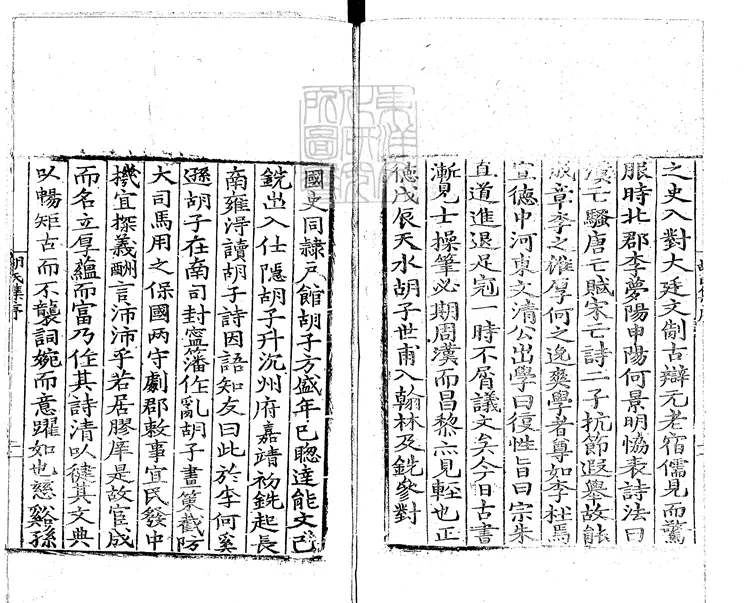 之史入對大廷文制古辯元老宿儒見而驚
服時北郡李夢陽申陽何景明恊表詩法曰
漢亡騷唐亡賦宋亡詩二子抗節遐舉故能
成章李之雄厚何之逸爽學者尊如李杜焉
宣德中河東文清公出學曰復性旨曰宗朱
直道進退足宼一時不屑議文矣今日古書
漸見士操筆必期周漢而昌黎亦見輊也正
德戊辰天水胡子世甫入翰林及銑參對
國史同隷戸館胡子方盛年已聰達能文已
銑出入仕隱胡子升沉州府嘉靖初銑起長
南雍淂讀胡子詩因語知友曰此於李何奚
遜胡子在南司封寧藩作亂胡子畫策截防
大司馬用之保國两守劇郡敕事宜民發中
機宜探義酬言沛沛乎若居膠庠是故官成
而名立厚蘊而富乃徃其詩清以健其文典
以暢矩古而不襲詞婉而意躍如也慈谿孫
胡氏集序
二
東洋文化研究所圖